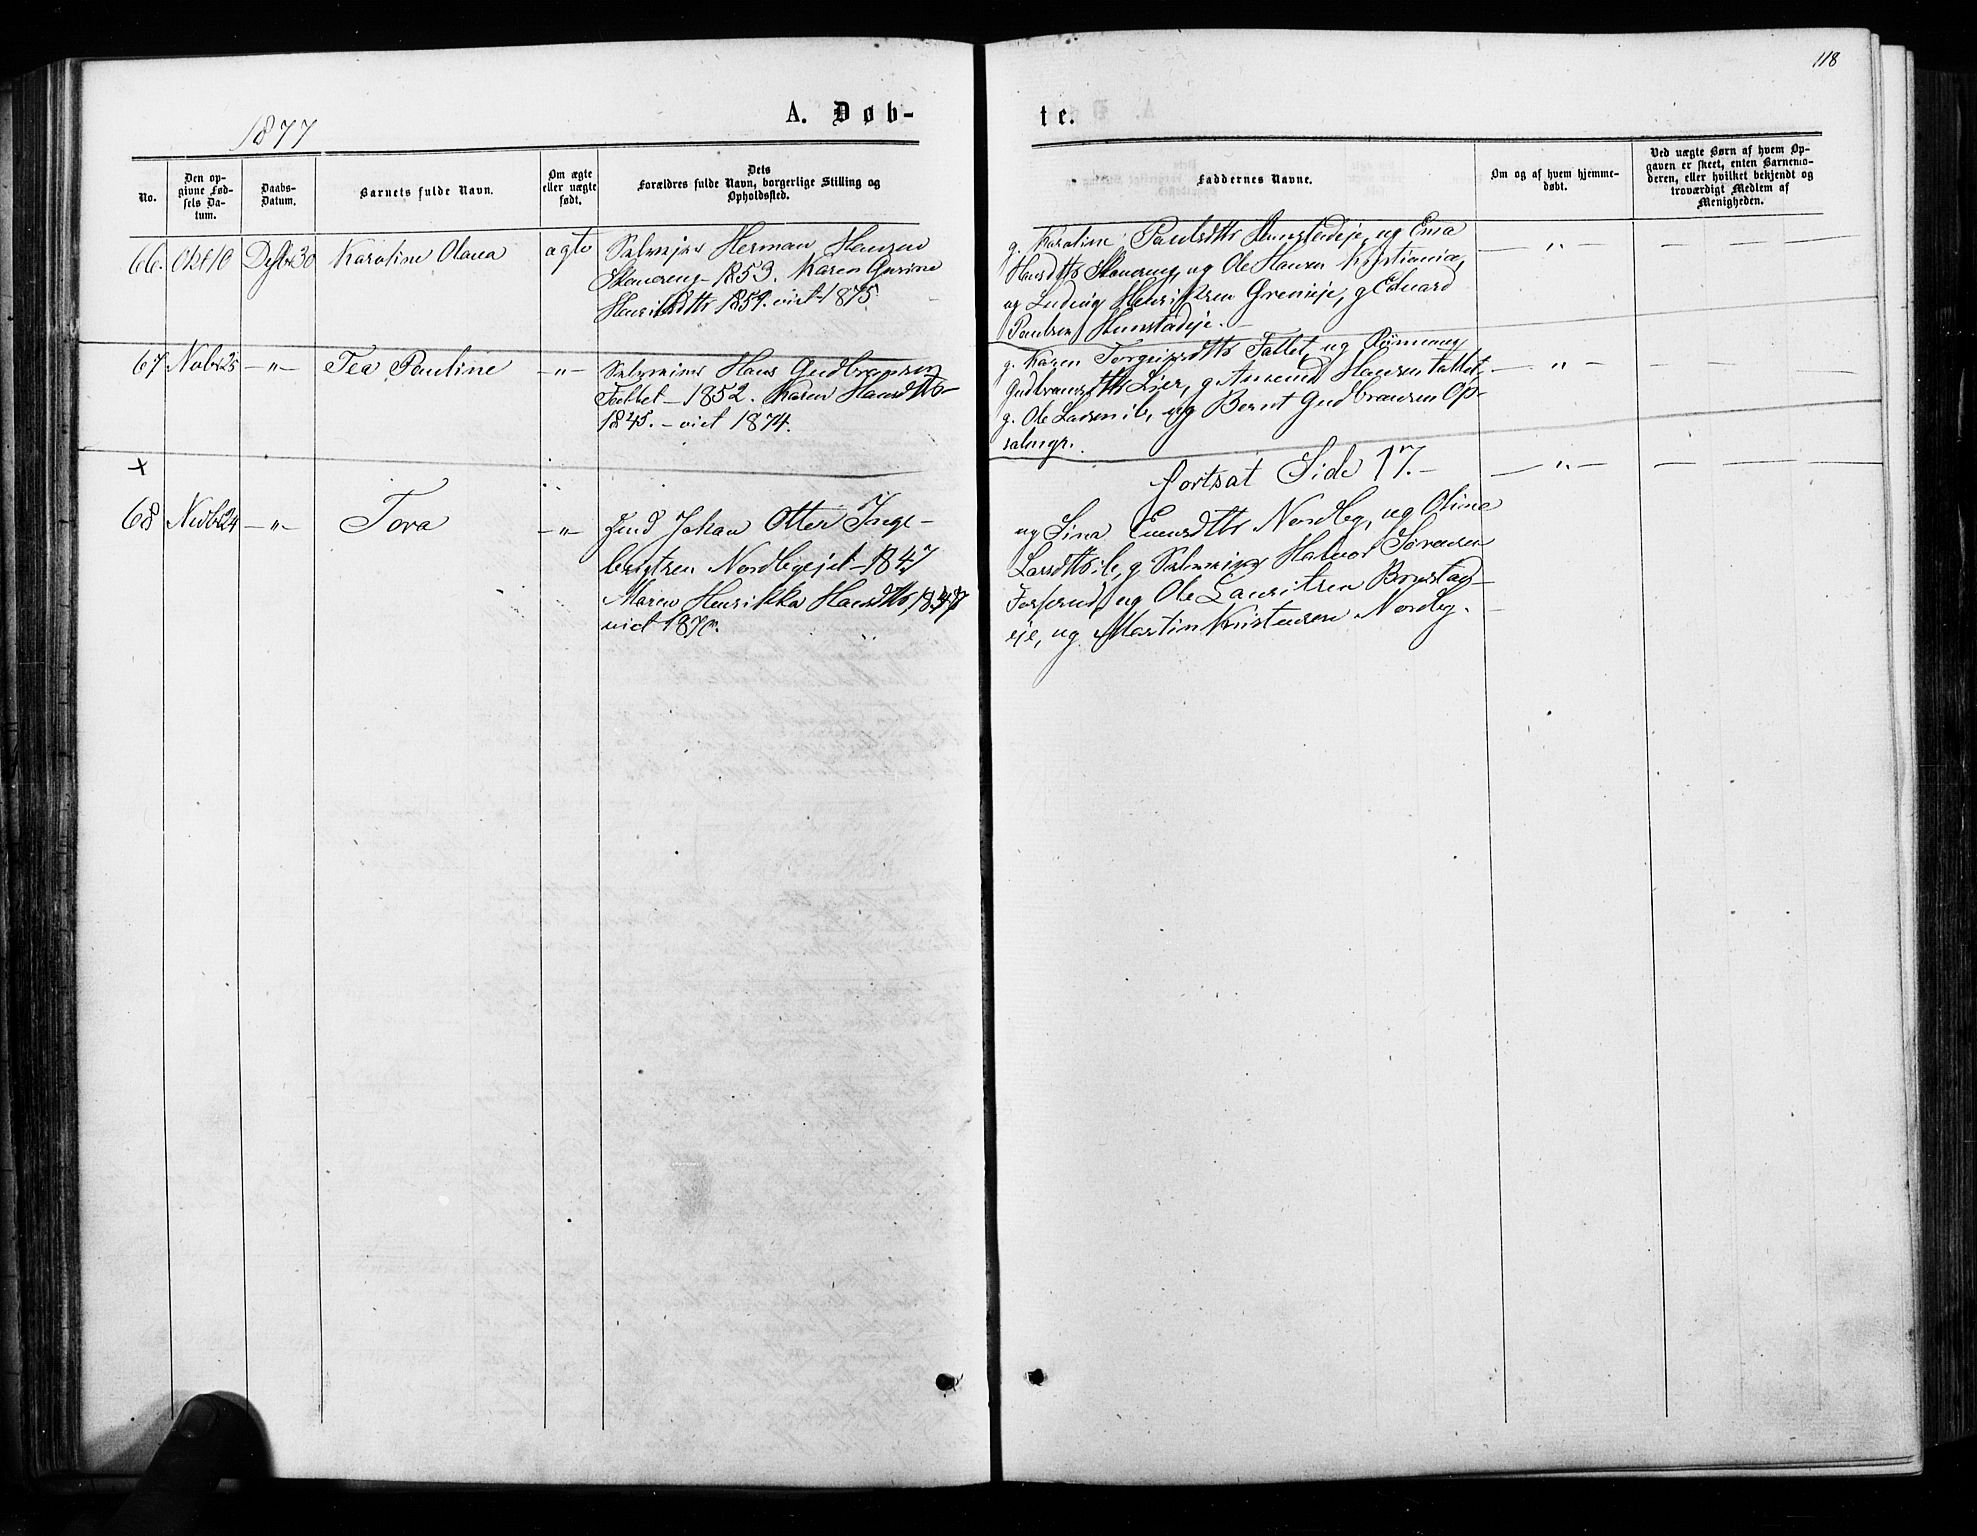 118
1877
A. Døb-
te.
No.
Den op-
givne Fød-
sels Da-
tum.
Daabs-
Datum.
Barnets fulde Navn.
Om ægte
eller uægte
født.
Dets
Forældres fulde Navn, borgerlige Stilling og
Opholdssted.
Faddernes Navne.
Om og af hvem hjemme-
døbt.
Ved uægte Børn af hvem Op-
gaven er skeet, enten Barnemo-
deren, eller hvilket bekjendt og
troværdigt Medlem af
Menigheden.
66. Okt 10 Desbr 30 Karoline Olava ægte
Selveier Herman Hansen
1853. Karen Gurine
Henriksdtr 1859. viet 1875.
g. Karoline Paulsdtr Hunstadeje, ug Ema
Hansdtr ug Ole Hansen Kristiania,
ug Ludvig Henriksen g Edvard
Paulsen Hunstadeje.
— " — — — —
67 Novbr 25 — " — Tea Pauline — " —
Selveier Hans Gudbransen
1852. Karen Hansdtr
1845. — viet 1874.
g. Karen Torgersdtr Tattet, ug
Gudbransdtr Lier, g. Amund Hansen Tattet,
g. Ole Larsen ib, ug Bernt Gudbransen Op-
salmgr.
— " — — — —
+
68 Novbr 24 — " — Tora — " —
Johan Otter Inge-
brigtsen Nordbyejet 1847
Maren Henrikka Hansdtr, 1847
viet 187
fortsat Side 17. —
ug Lina Evensdtr Nordby, ug Olina
Larsdtr ib, g. Selveier Halvor Sørensen
ug Ole Lauritsen
eje, ug Martin Kristensen Nordby.
— " — — — —